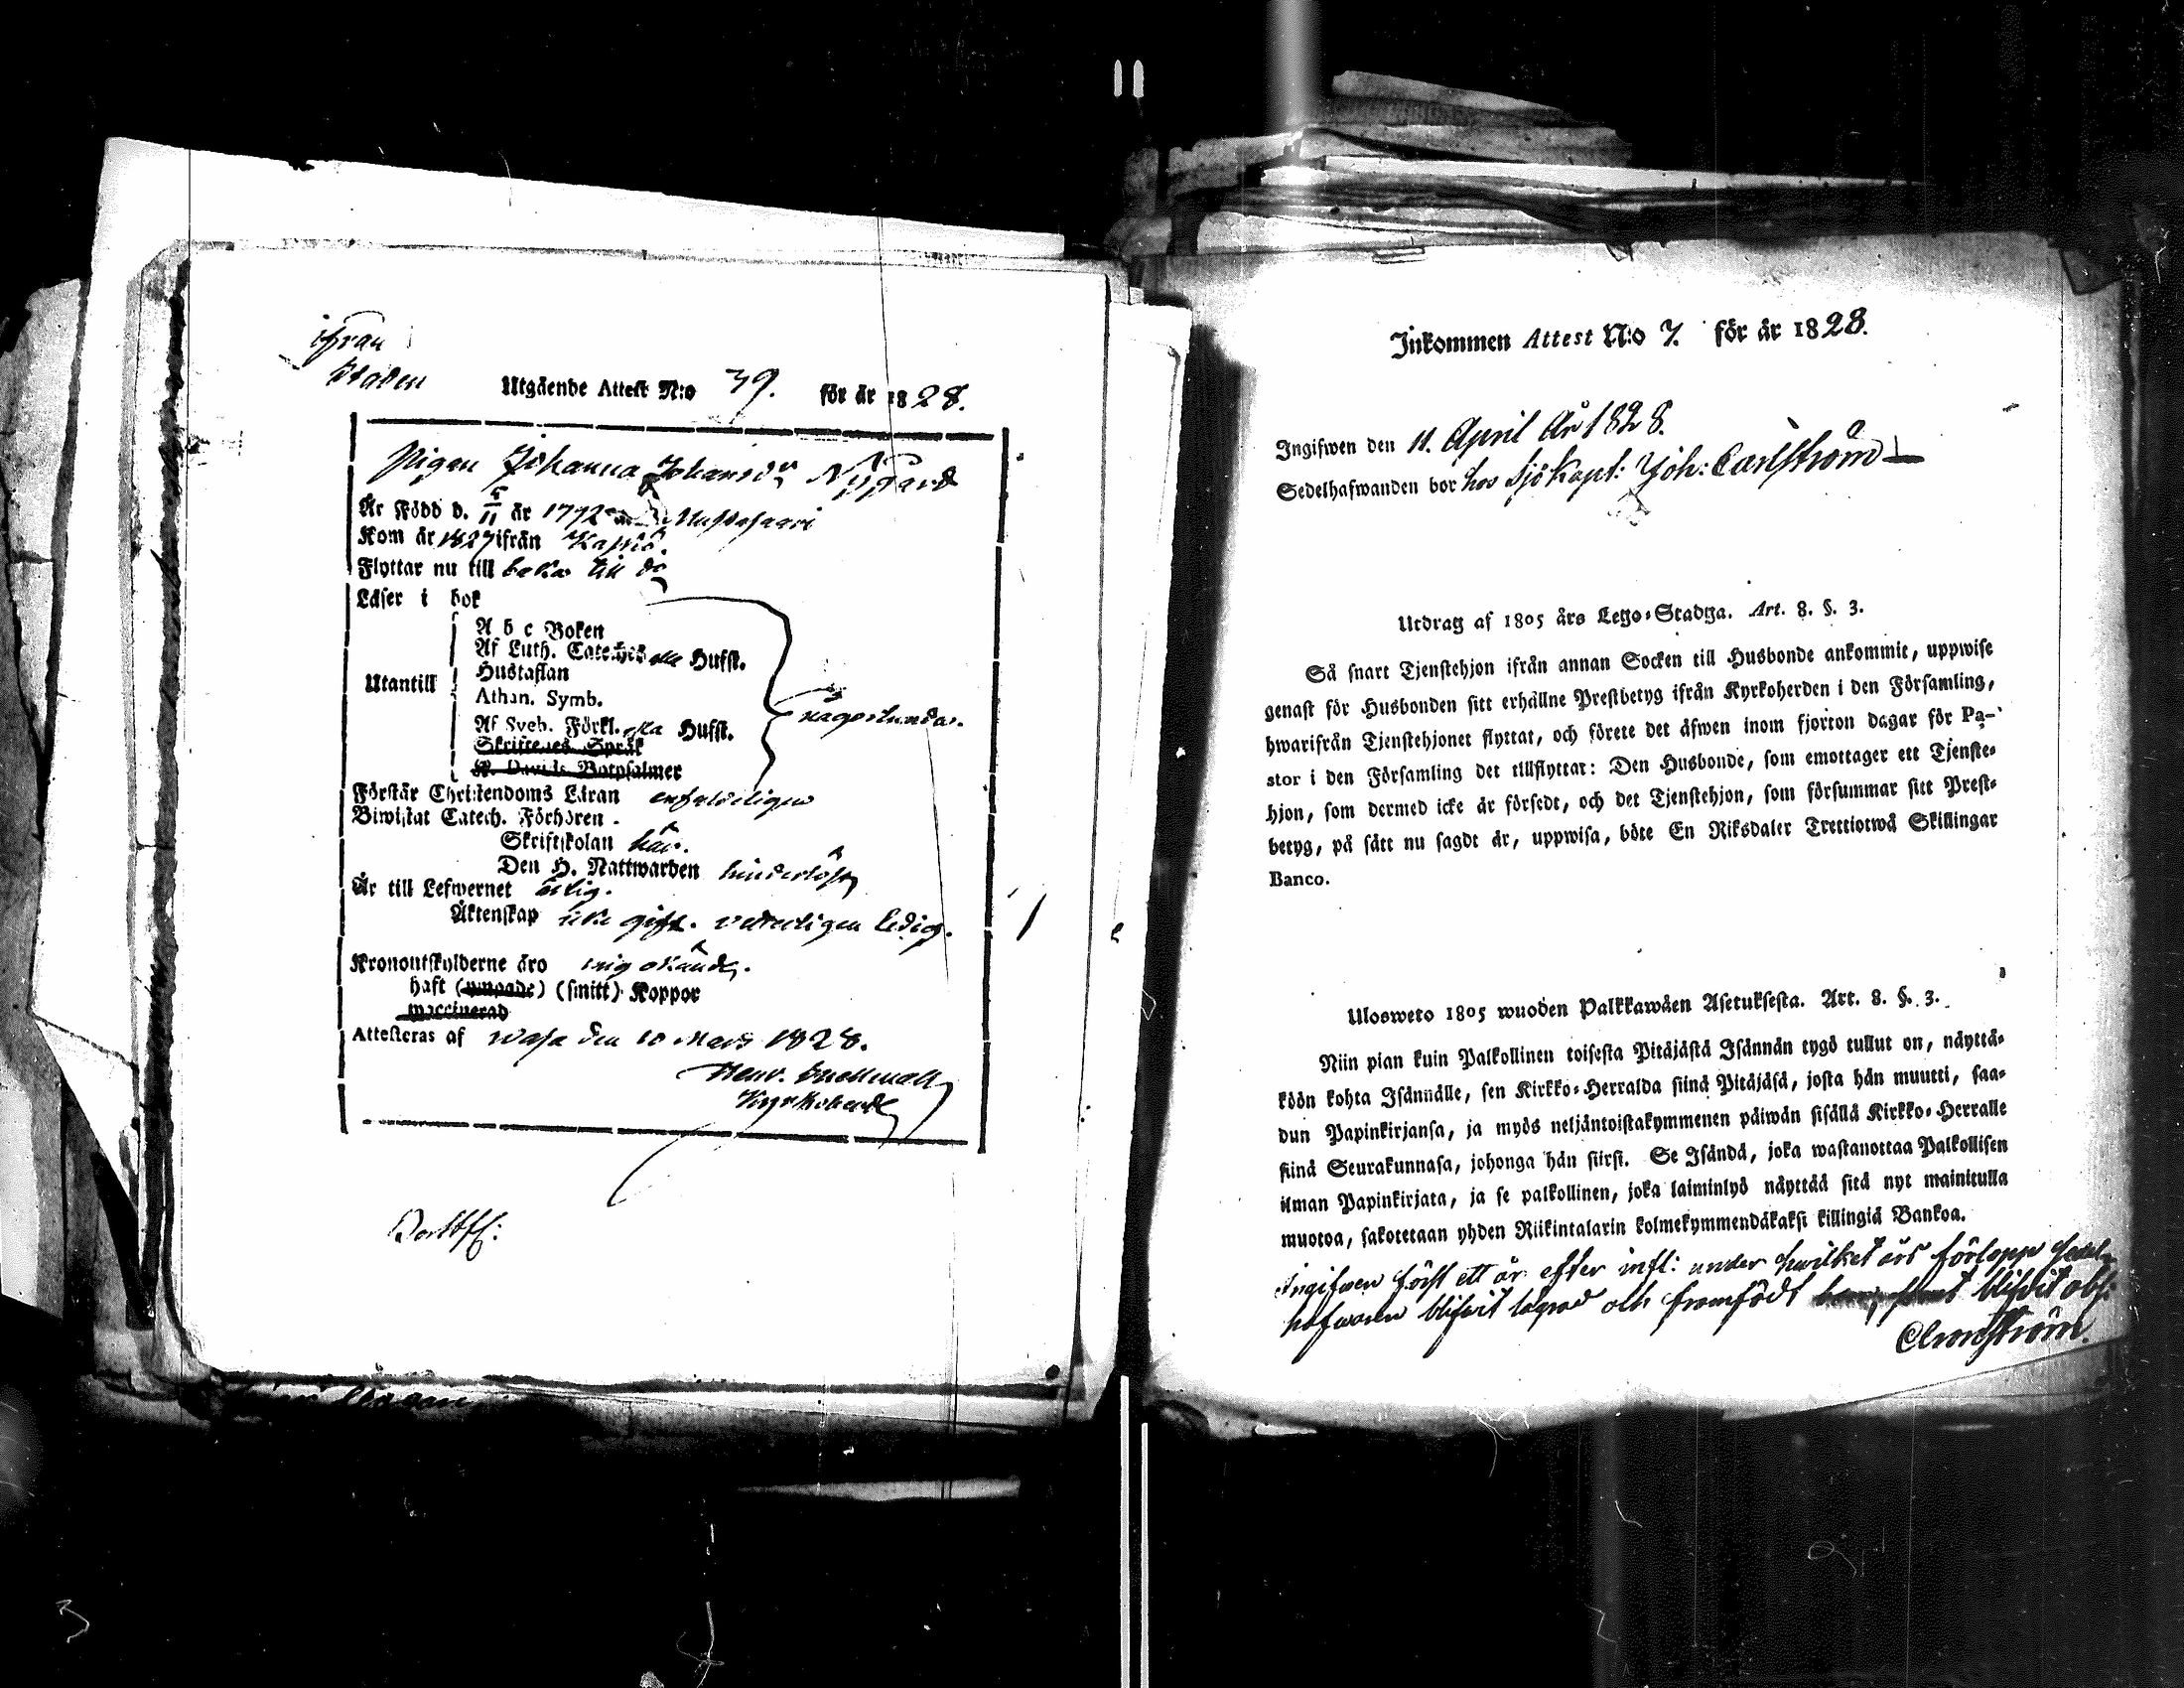 ifrån
Staden
Utgående Attest N:o 39. för år 1828.
Pigan Johanna Johansdr Nygård
Är Född d. 5/11 år 1772 Mustasaari
Kom år 1827 ifrån Kaskö.
Flyttar nu till baka till do
Läser i bok
A b c Boken
Af Luth. Cateches alla Hufst.
Hustaflan
Utantill
Athan. Symb.
någorlunda.
Af Sveb. Förkl. alla Hufst.
Skriftenes Språk
K. Davids Botpsalmer
Förstår Christendoms Läran enfaldeligen
Biwistat Catech. Förhören
Skriftskolan här.
Den H. Nattwarden hinderlöst
Är till Lefwernet ärlig.
Äktenskap icke gift. vederligen ledig.
Kronoutskylderne äro mig okände.
haft (ympade) (smitt) Koppor
waccinerad
Attesteras af Wasa den 10 Mars 1828.
Henr. Snellman
Kyrkoherde
Inkommen Attest N:o 7. för år 1828.
Ingifwen den 11. April År 1828.
Sedelhafwanden bor hos Sjö Kapt: Joh: Carlström
Utdrag af 1805 års Lego-Stadga. Art. 8. §. 3.
Så snart Tjenstehjon ifrån annan Socken till Husbonde ankommit, uppwise
genast för Husbonden sitt erhållne Prestbetyg ifrån Kyrkoherden i den Församling,
hwarifrån Tjenstehjonet flyttat, och förete det äfwen inom fjorton dagar för Pa-
stor i den Församling det tillflyttar: Den Husbonde, som emottager ett Tjenste-
hjon, som dermed icke är försedt, och det Tjenstehjon, som försummar sitt Prest-
betyg, på sätt nu sagdt är, uppwisa, böte En Riksdaler Trettiotwå Skillingar
Banco.
Ulosweto 1805 wuoden Palkkawäen Asetuksesta. Art. 8. §. 3.
Niin pian kuin Palkollinen toisesta Pitäjästä Isännän tygö tullut on, näyttä-
köön kohta Isännälle, sen Kirkko-Herralda siinä Pitäjäsä, josta hän muutti, saa-
dun Papinkirjansa, ja myös neljäntoistakymmenen päiwän sisällä Kirkko-Herralle
siinä Seurakunnasa, johonga hän siirsi. Se Isändä, joka wastanottaa Palkollisen
ilman Papinkirjata, ja se palkollinen, joka laiminlyö näyttää sitä nyt mainitulla
muotoa, sakotetaan yhden Riikintalarin kolmekymmendäkaksi killingiä Bankoa.
Ingifwen först ett år efter infl: under hwilket års förlopp sedel-
hafwaren blifwit lägrad och framfödt blifwit